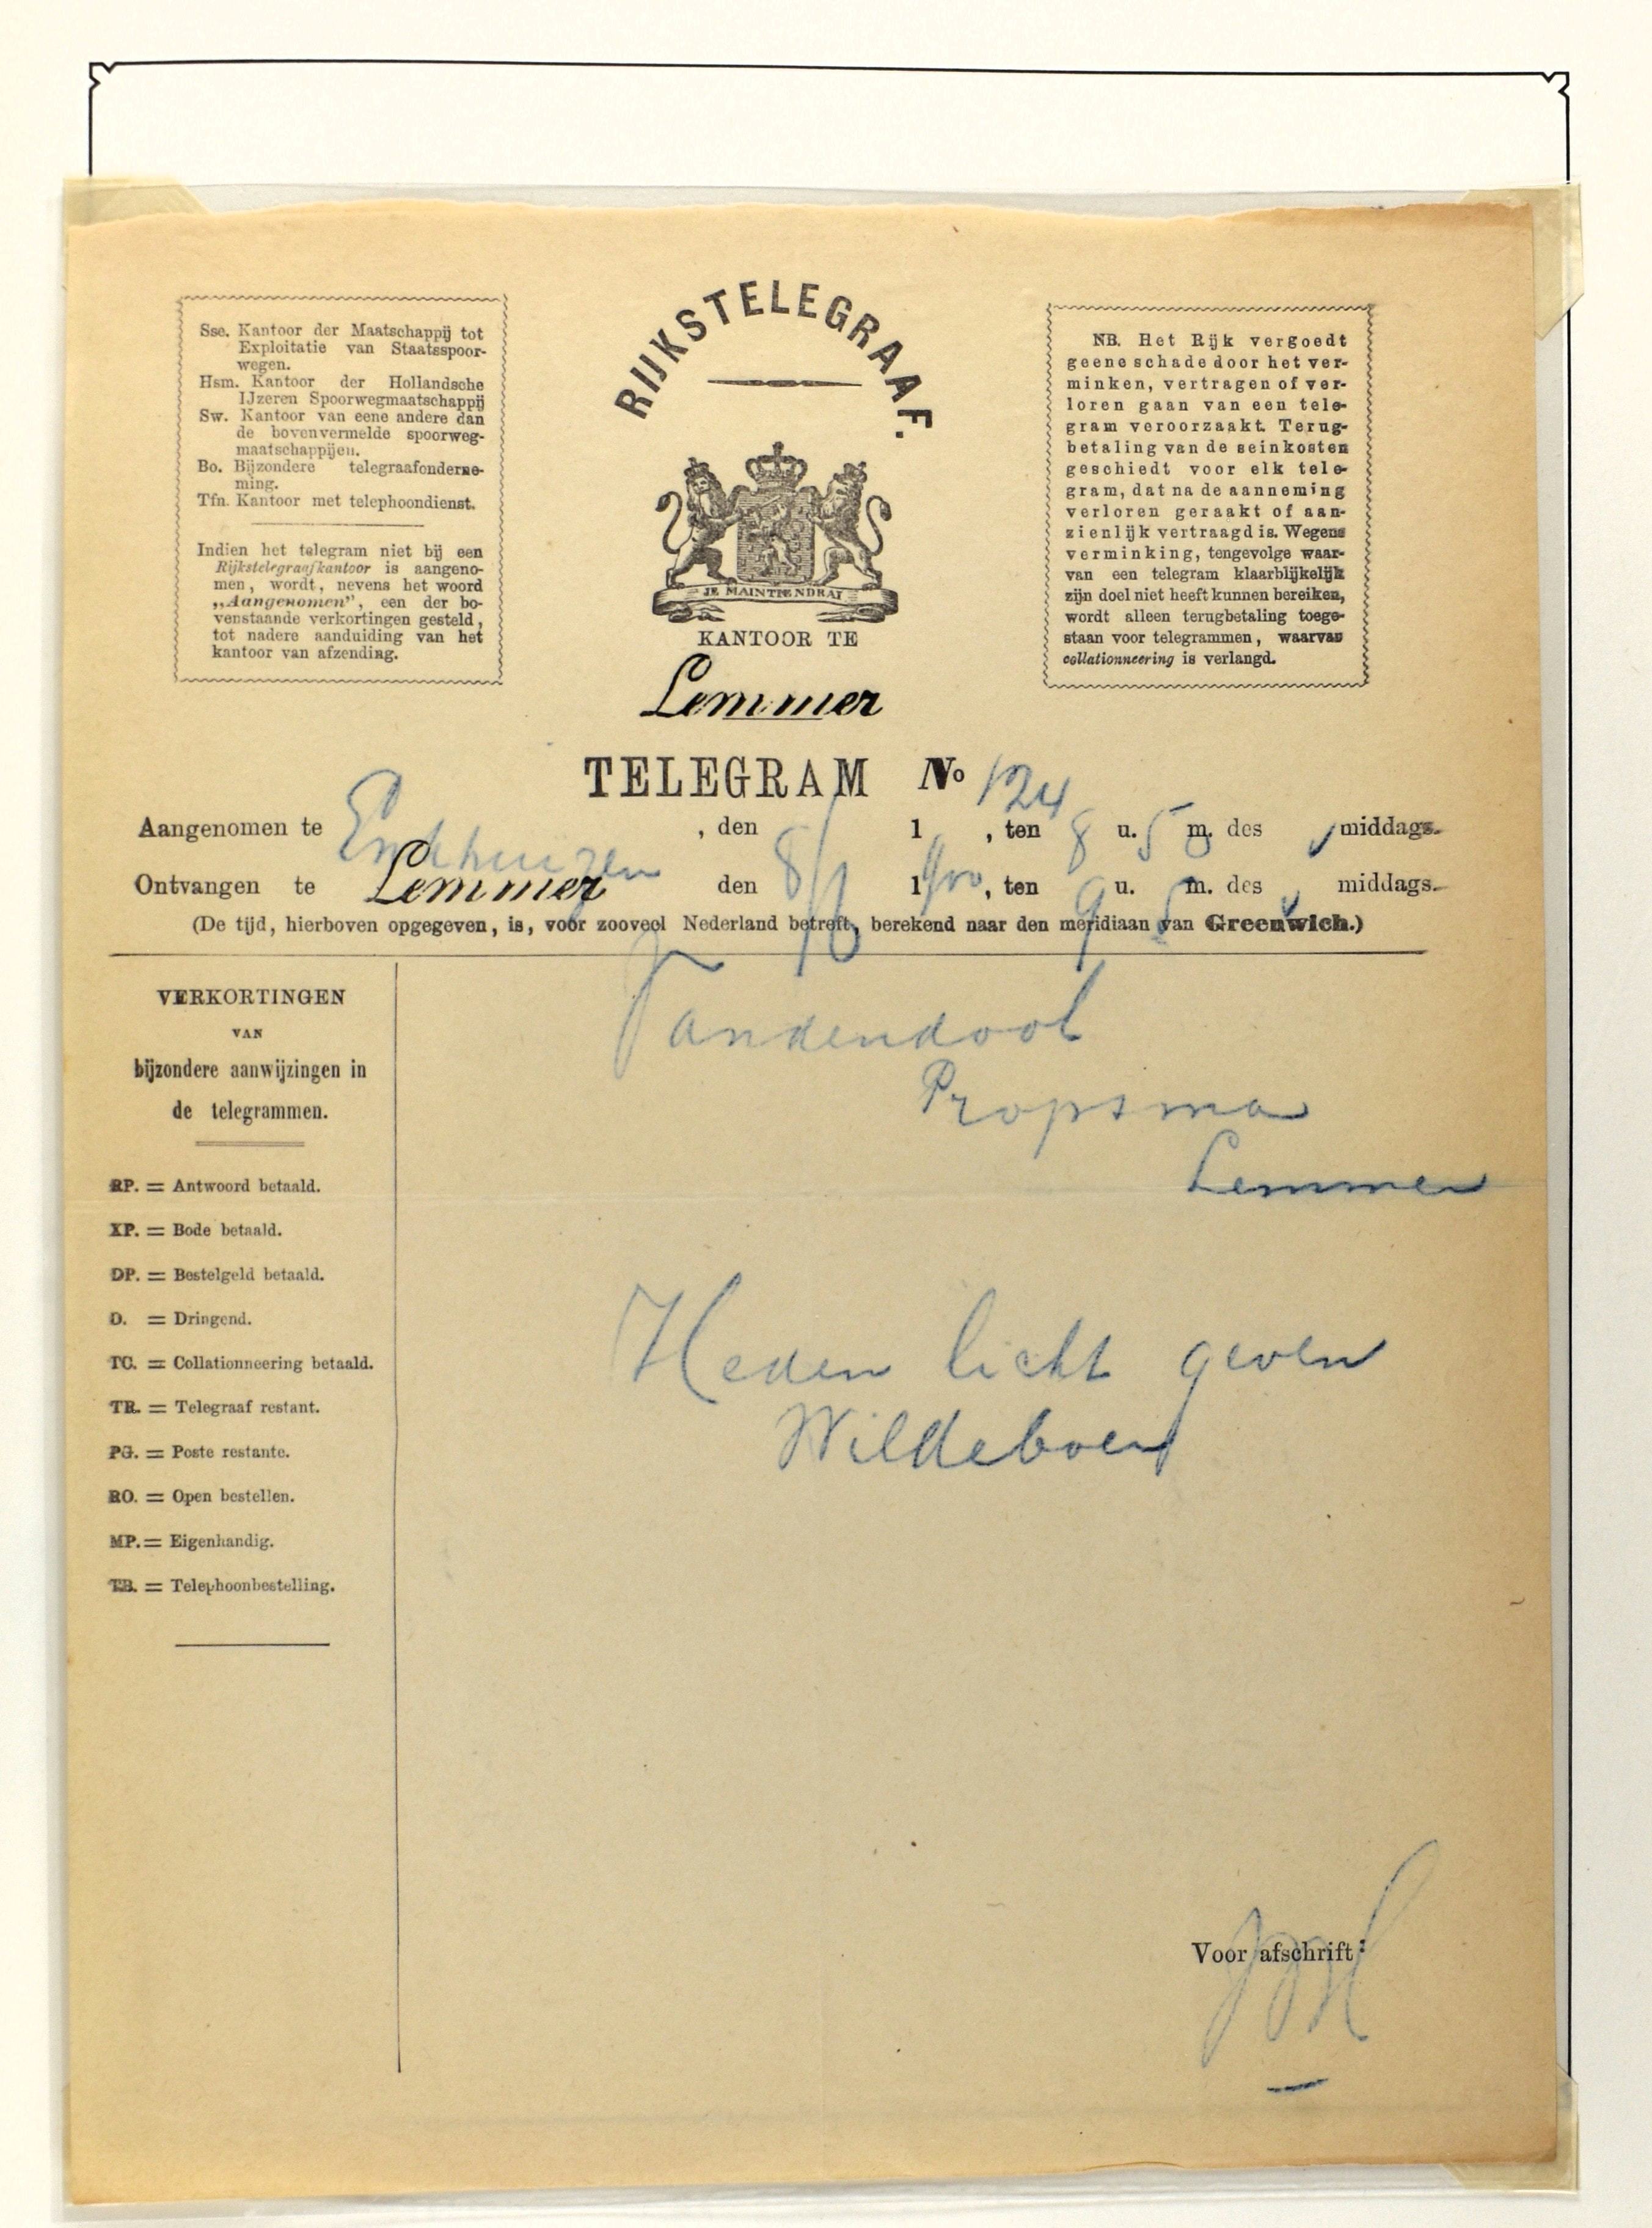 Sse. Kantoor der Maatschappij tot
Exploitatie van Staatsspoor-
wegen.
Hsm. Kantoor der Hollandsche
IJzeren Spoorwegmaatschappij
Sw. Kantoor van eene andere dan
de bovenvermelde spoorweg-
maatschappijen.
Bo. Bijzondere telegraafonderne-
ming.
Tfn. Kantoor met telephoondienst.
Indien het telegram niet bij een
Rijkstelegraafkantoor is aangeno-
men, wordt, nevens het woord
„Aangenomen”, een der bo-
venstaande verkortingen gesteld,
tot nadere aanduiding van het
kantoor van afzending.
RIJKSTELEGRAAF.
JE MAINTIENDRAI
KANTOOR TE
Lemmer
NB. Het Rijk vergoedt
geene schade door het ver-
minken, vertragen of ver-
loren gaan van een tele-
gram veroorzaakt. Terug-
betaling van de seinkosten
geschiedt voor elk tele-
gram, dat na de aanneming
verloren geraakt of aan-
zienlijk vertraagd is. Wegens
verminking, tengevolge waar-
van een telegram klaarblijkelijk
zijn doel niet heeft kunnen bereiken,
wordt alleen terugbetaling toege-
staan voor telegrammen, waarvan
collationneering is verlangd.
TELEGRAM No 124
Aangenomen te Enkhuizen, den 8/1 1 , ten 8 u. 5 m. des middags.
Ontvangen te Lemmer den 8/1 1900, ten 9 u. 5 m. des middags.
(De tijd, hierboven opgegeven, is, voor zooveel Nederland betreft, berekend naar den meridiaan van Greenwich.)
VERKORTINGEN
VAN
bijzondere aanwijzingen in
de telegrammen.
RP. = Antwoord betaald.
XP. = Bode betaald.
DP. = Bestelgeld betaald.
D. = Dringend.
TC. = Collationneering betaald.
TR. = Telegraaf restant.
PG. = Poste restante.
RO. = Open bestellen.
MP. = Eigenhandig.
TB. = Telephoonbestelling.
Vandendool
Propsma
Lemmer
Heden licht geven
Wildeboer
Voor afschrift: